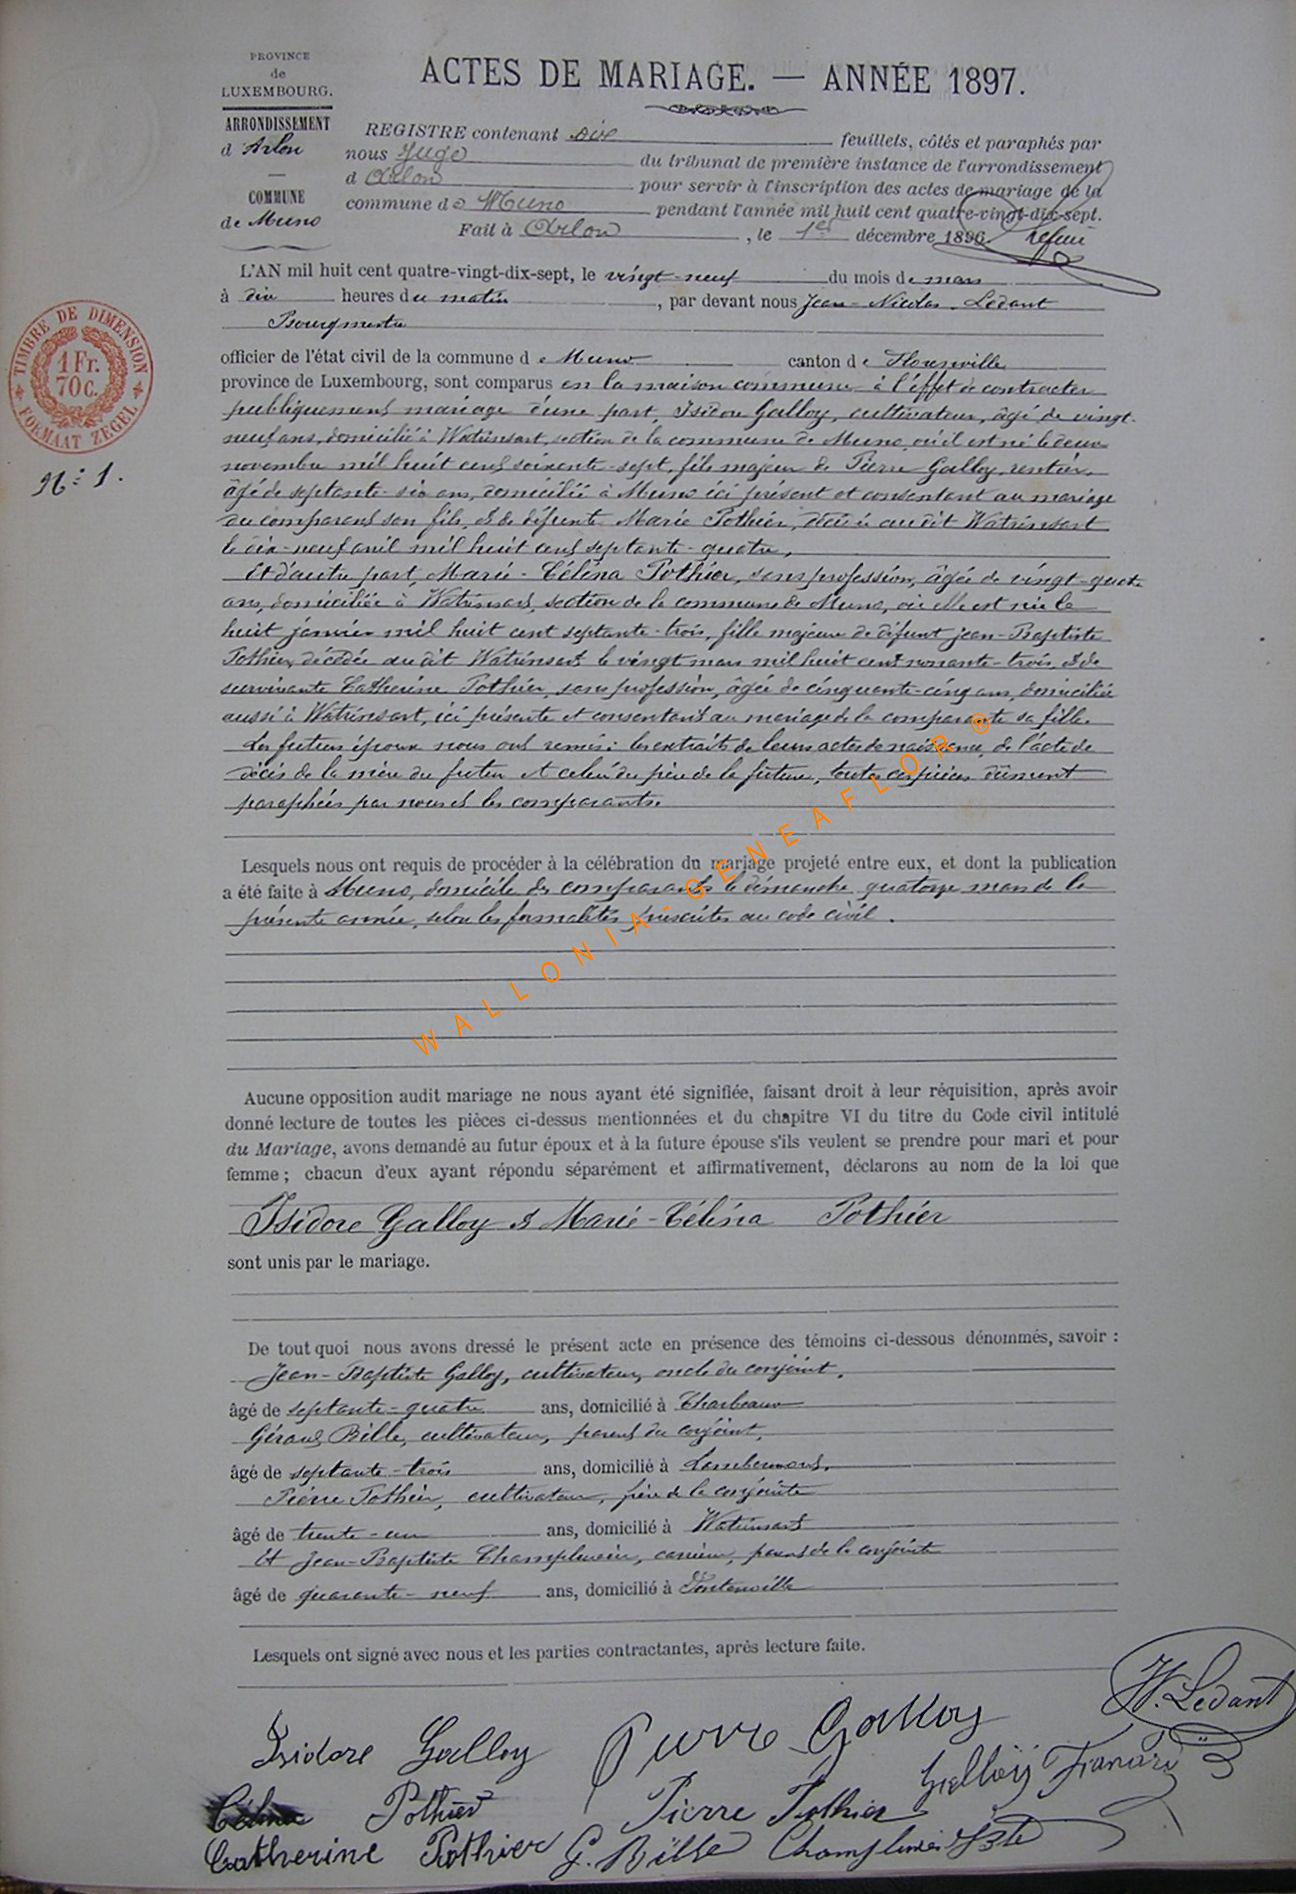 PROVINCE
de
LUXEMBOURG.
ARRONDISSEMENT
d'Arlon
COMMUNE
de Muno
ACTES DE MARIAGE. — ANNÉE 1897.
REGISTRE contenant dix feuillets, côtés et paraphés par
nous Juge du tribunal de première instance de l'arrondissement
d Arlon pour servir à l'inscription des actes de mariage de la
commune de Muno pendant l'année mil huit cent quatre-vingt-dix-sept.
Fait à Arlon, le 1er décembre 1896
TIMBRE DE DIMENSION
1 Fr.
70 c.
FORMAAT ZEGEL
N° 1.
L'AN mil huit cent quatre-vingt-dix-sept, le vingt-neuf du mois de mars
à dix heures du matin, par devant nous Jean-Nicolas Ledant
Bourgmestre
officier de l'état civil de la commune de Muno canton de Florenville
province de Luxembourg, sont comparus en la maison commune à l'effet de contracter
publiquement mariage d'une part, Isidore Galloy, cultivateur, âgé de vingt-
neuf ans, domicilié à Watrinsart, section de la commune de Muno, où il est né le deux
novembre mil huit cent soixante-sept, fils majeur de Pierre Galloy, rentier,
âgé de septante-six ans, domicilié à Muno ici présent et consentant au mariage
du comparant son fils, et de défunte Marie Pothier, décédée audit Watrinsart
le dix-neuf avril mil huit cent septante-quatre,
Et d'autre part, Marie-Céléna Pothier, sans profession, âgée de vingt-quatre
ans, domiciliée à Watrinsart, section de la commune de Muno, où elle est née le
huit janvier mil huit cent septante-trois, fille majeure de défunt Jean-Baptiste
Pothier, décédée audit Watrinsart le vingt mars mil huit cent nonante-trois, et de
survivante Catherine Pothier, sans profession, âgée de cinquante-cinq ans, domiciliée
aussi à Watrinsart, ici présente et consentant au mariage de la comparante sa fille.
Les futurs époux nous ont remis: les extraits de leurs actes de naissance, de l'acte de
décès de la mère du futur et celui du père de la future, toutes ces pièces dûment
paraphées par nous et les comparants.
Lesquels nous ont requis de procéder à la célébration du mariage projeté entre eux, et dont la publication
a été faite à Muno, domicile des comparants le dimanche, quatorze mars de la
présente année, selon les formalités prescrites au code civil.
WALLONIA-GENEAFLOR ®
Aucune opposition audit mariage ne nous ayant été signifiée, faisant droit à leur réquisition, après avoir
donné lecture de toutes les pièces ci-dessus mentionnées et du chapitre VI du titre du Code civil intitulé
du Mariage, avons demandé au futur époux et à la future épouse s'ils veulent se prendre pour mari et pour
femme ; chacun d'eux ayant répondu séparément et affirmativement, déclarons au nom de la loi que
Isidore Galloy et Marie-Céléna Pothier
sont unis par le mariage.
De tout quoi nous avons dressé le présent acte en présence des témoins ci-dessous dénommés, savoir :
Jean-Baptiste Galloy, cultivateur, oncle du conjoint,
âgé de septante-quatre ans, domicilié à Charbeaux
Gérard Bille, cultivateur, parent du conjoint,
âgé de septante-trois ans, domicilié à Lambermont,
Pierre Pothier, cultivateur, frère de la conjointe
âgé de trente-un ans, domicilié à Watrinsart
Et Jean-Baptiste Champlumier, carrier, parent de la conjointe
âgé de quarante-neuf ans, domicilié à Fontenoille
Lesquels ont signé avec nous et les parties contractantes, après lecture faite.
N. Ledant
Isidore Galloy Pierre Galloy
Galloy
Célina Pothier Pierre Pothier
Catherine Pothier G. Bille